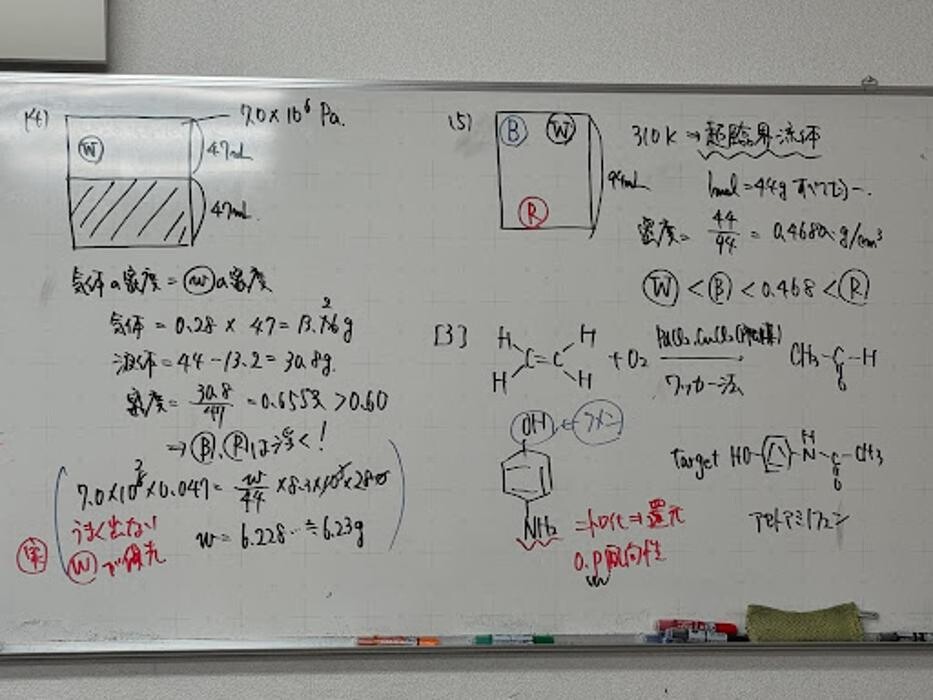 (4)
7.0×10⁶ Pa.
W
47mL
47mL
気体の密度 = Wの密度
気体 = 0.28 × 47 = 13.16 g
2
液体 = 44 - 13.2 = 30.8g.
密度 = 30.8/47 = 0.655 > 0.60
⇒ B, Rは浮く!
7.0×10⁶×0.047 = w/44 ×8.3×10³×280
w = 6.228… ≒ 6.23g
うまく出ない
Wで優先
(5)
B W
R
94mL
310K → 超臨界流体
1mol = 44g すべて均一.
密度 = 44/94 = 0.4680 g/cm³
W < B < 0.468 < R
[3]
H H C=C H H + O₂
PdCl₂, CuCl₂(触媒)
ワッカー法
CH₃-C-H
O
OH
NH₂
ニトロ化→還元
o.p配向性
Target HO- -N-C-CH₃
H
O
アセトアミノフェン